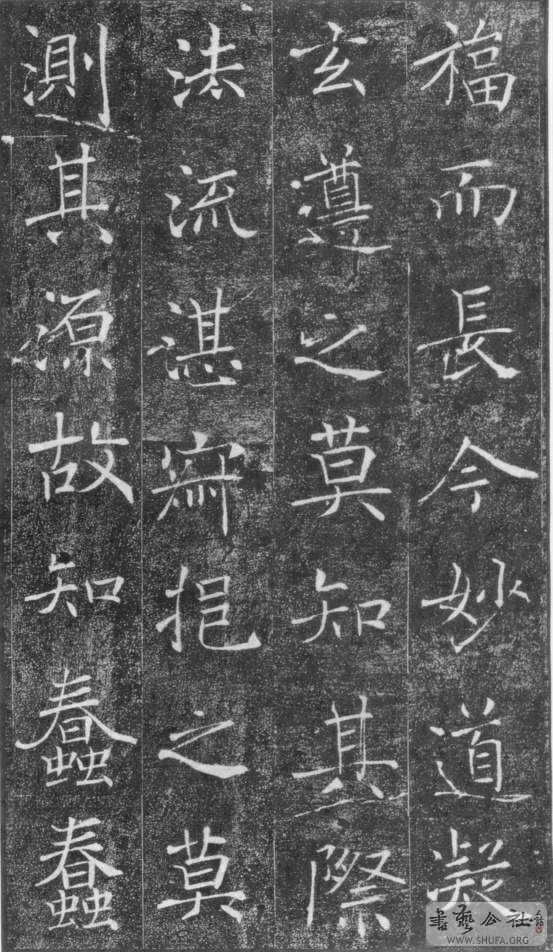 福而長今妙道凝
玄遵之莫知其際
法流湛寂挹之莫
測其源故知蠢蠢
書藝公社
WWW.SHUFA.ORG